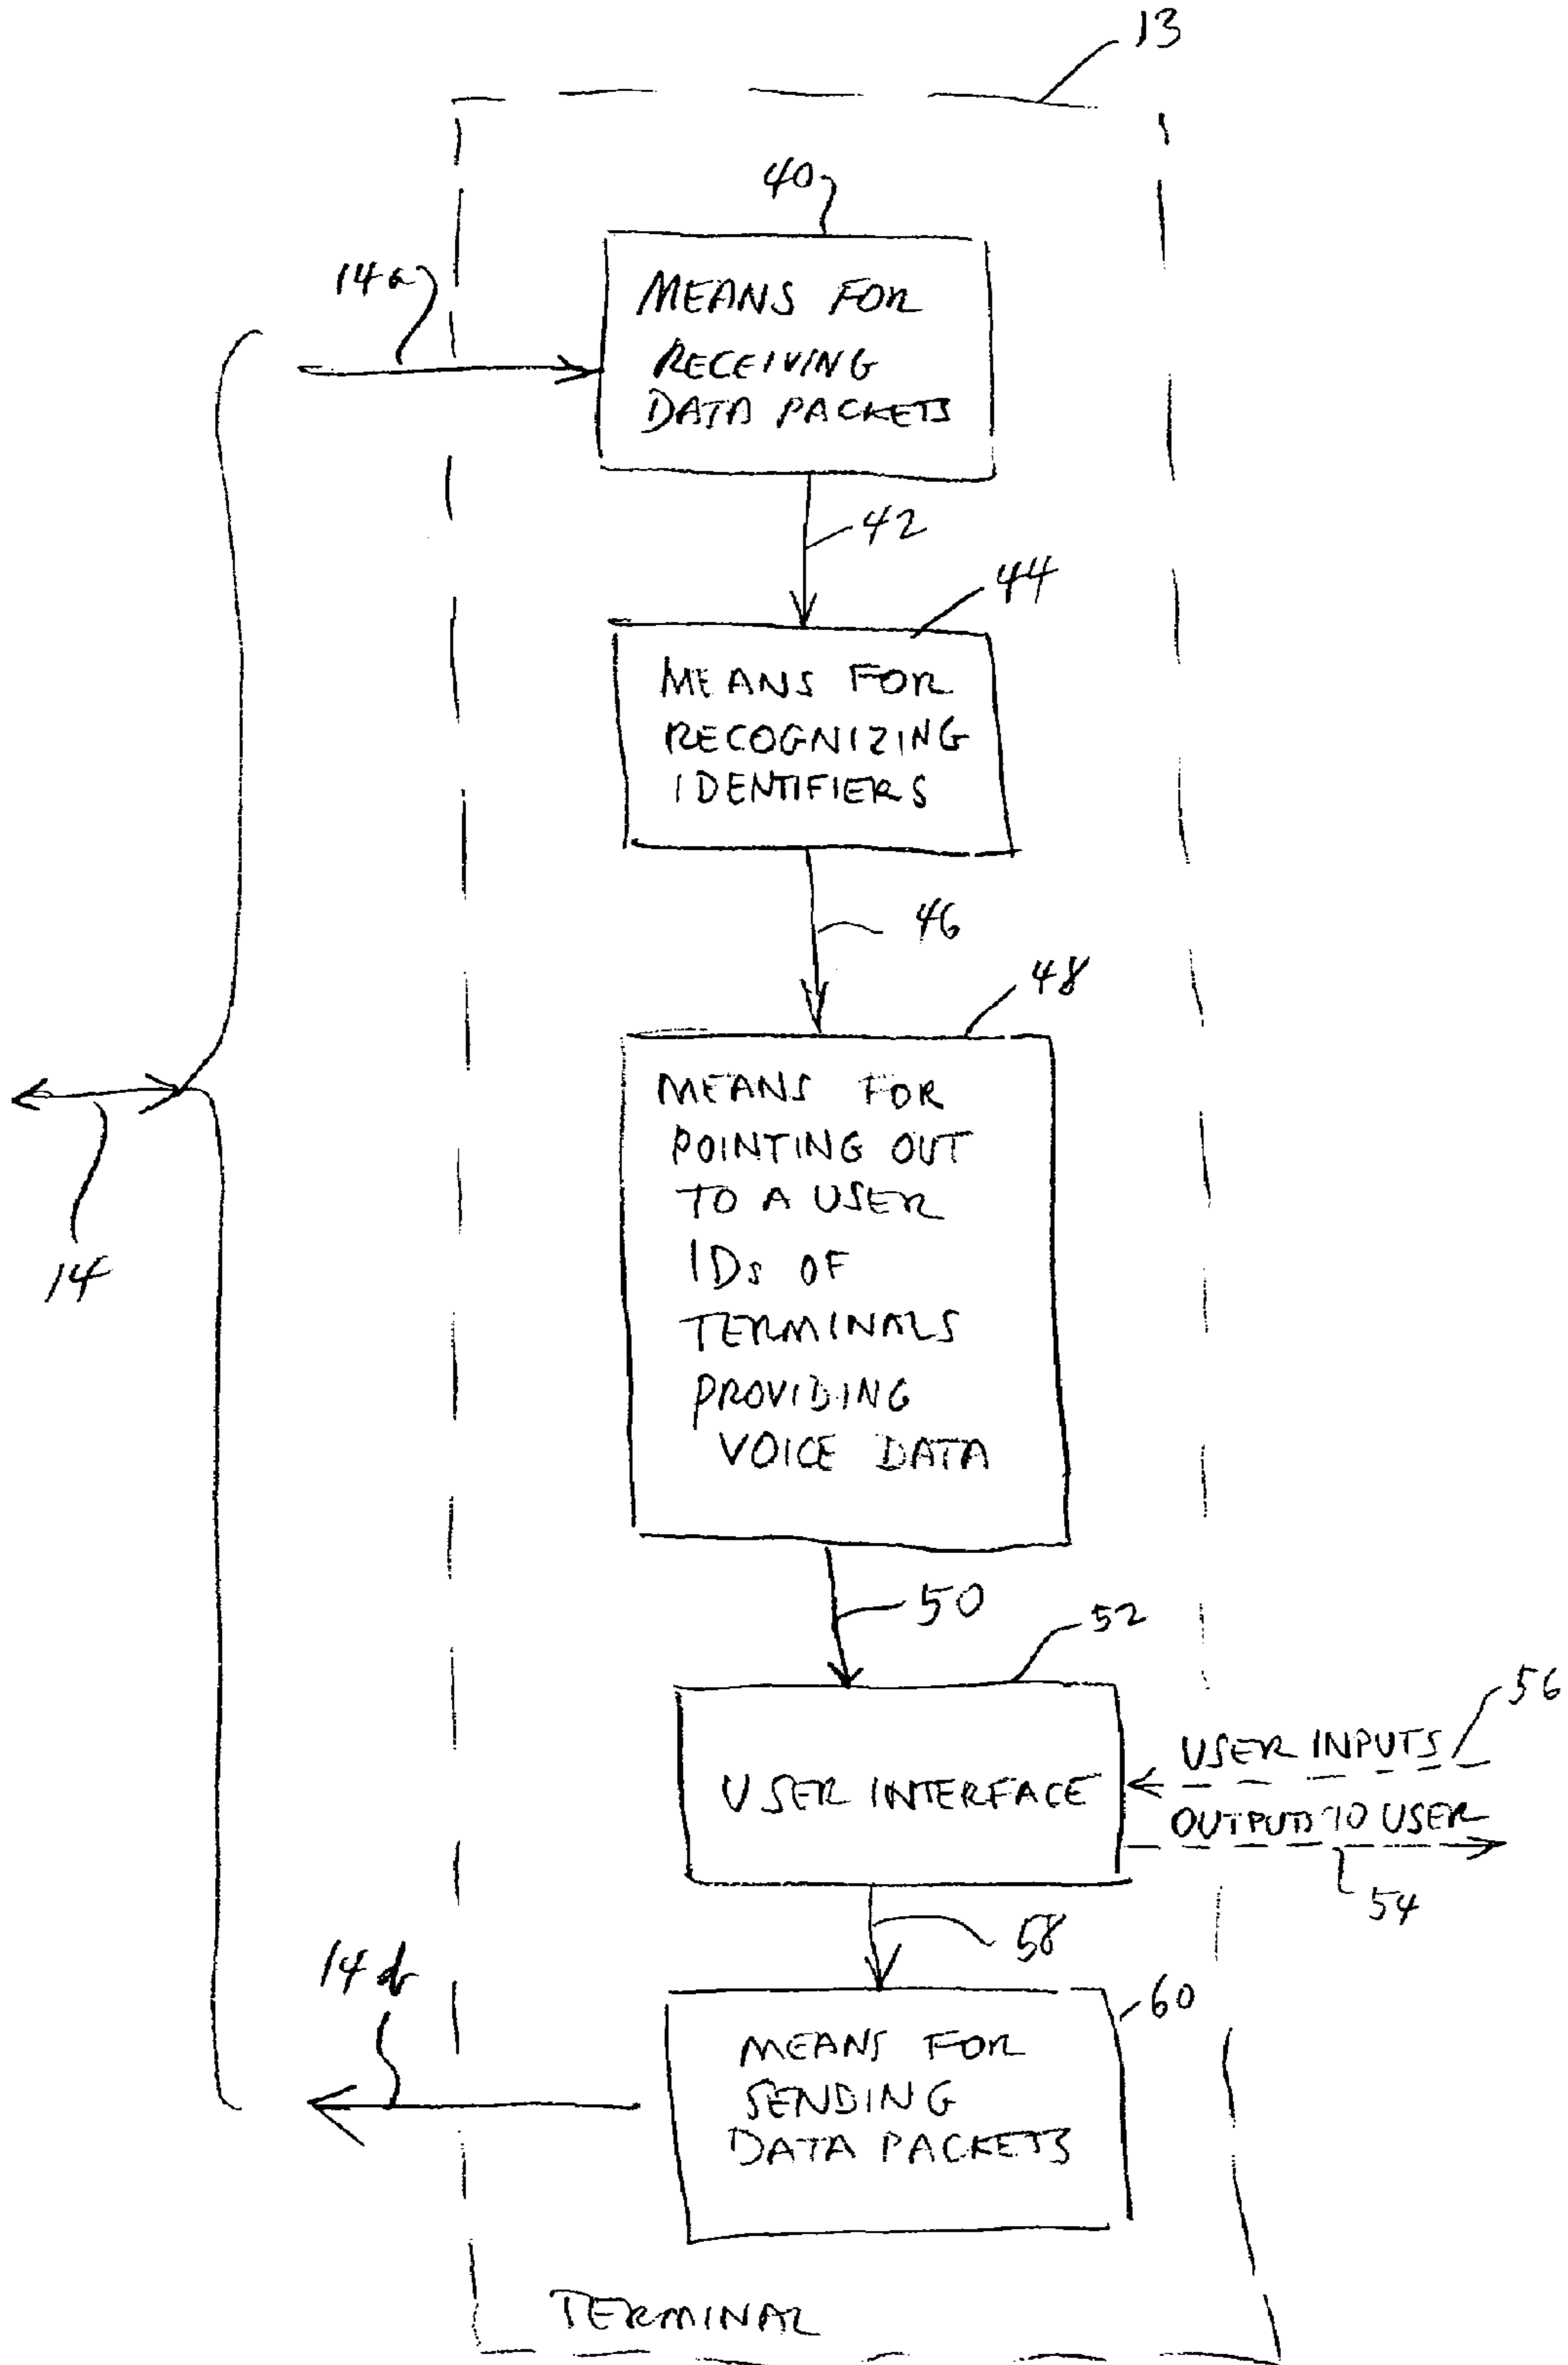 13
40
14a
MEANS FOR
RECEIVING
DATA PACKETS
42
44
MEANS FOR
RECOGNIZING
IDENTIFIERS
46
48
MEANS FOR
POINTING OUT
TO A USER
IDs OF
TERMINALS
PROVIDING
VOICE DATA
14
50
52
56
USER INPUTS
USER INTERFACE
OUTPUTS TO USER
54
58
14b
60
MEANS FOR
SENDING
DATA PACKETS
TERMINAL